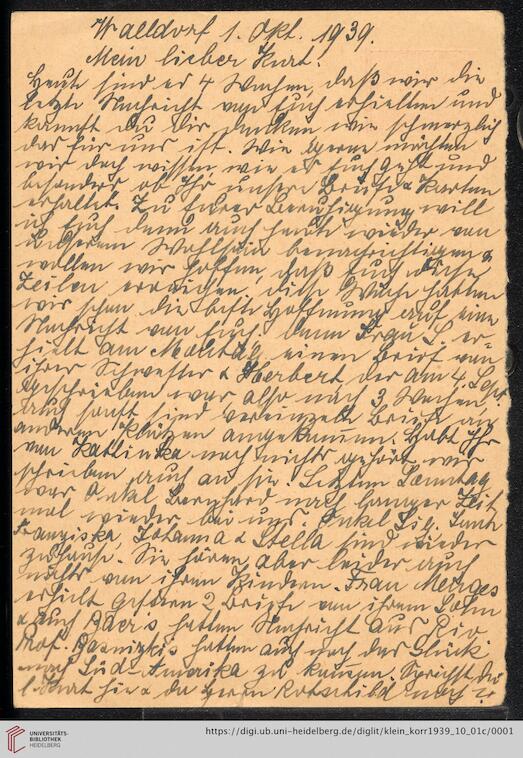 Walldorf 1. Okt. 1939.
Mein lieber Kurt!
Heute sind es 4 Wochen, daß wir die
letzte Nachricht von Euch erhielten und
kannst Du Dir denken wie schmerzlich
das für uns ist. Wie gerne möchten
wir doch wissen, wie es Euch geht und
besonders ob Ihr unsere Briefe & Karten
erhaltet. Zu Eurer Beruhigung will
ich Euch denn auch heute wieder von
unserem Wohlsein benachrichtigen &
wollen wir hoffen, daß Euch diese
Zeilen erreichen, diese Woche hatten
wir schon die beste Hoffnung auf eine
Nachricht von Euch, denn Frau L. er-
hielt am Montag einen Brief von
ihrer Schwester & Herbert, der am 4. Sept.
geschrieben war also nach 3 Wochen,
auch sonst sind vereinzelte Briefe an
anderen Plätzen angekommen. Habt Ihr
von Kattinka noch nichts gehört wir
schrieben auch an sie. Letzten Sonntag
war Onkel Bernhard nach langer Zeit
mal wieder bei uns. Onkel Sig. Tante
Franziska, Johanna & Stella sind wieder
zuhause. Sie hören aber leider auch
nichts von ihren Kindern. Frau Menges
erhielt gestern 2 Briefe von ihrem Sohn
& auch Baer's hatten Nachricht aus Rio
Prof. hatten auch noch das Glück
nach Süd-Amerika zu kommen. Sprichst Du
l. Kurt hie & da Herrn Rotschild noch?
UNIVERSITÄTS-
BIBLIOTHEK
HEIDELBERG
https://digi.ub.uni-heidelberg.de/diglit/klein_korr1939_10_01c/0001